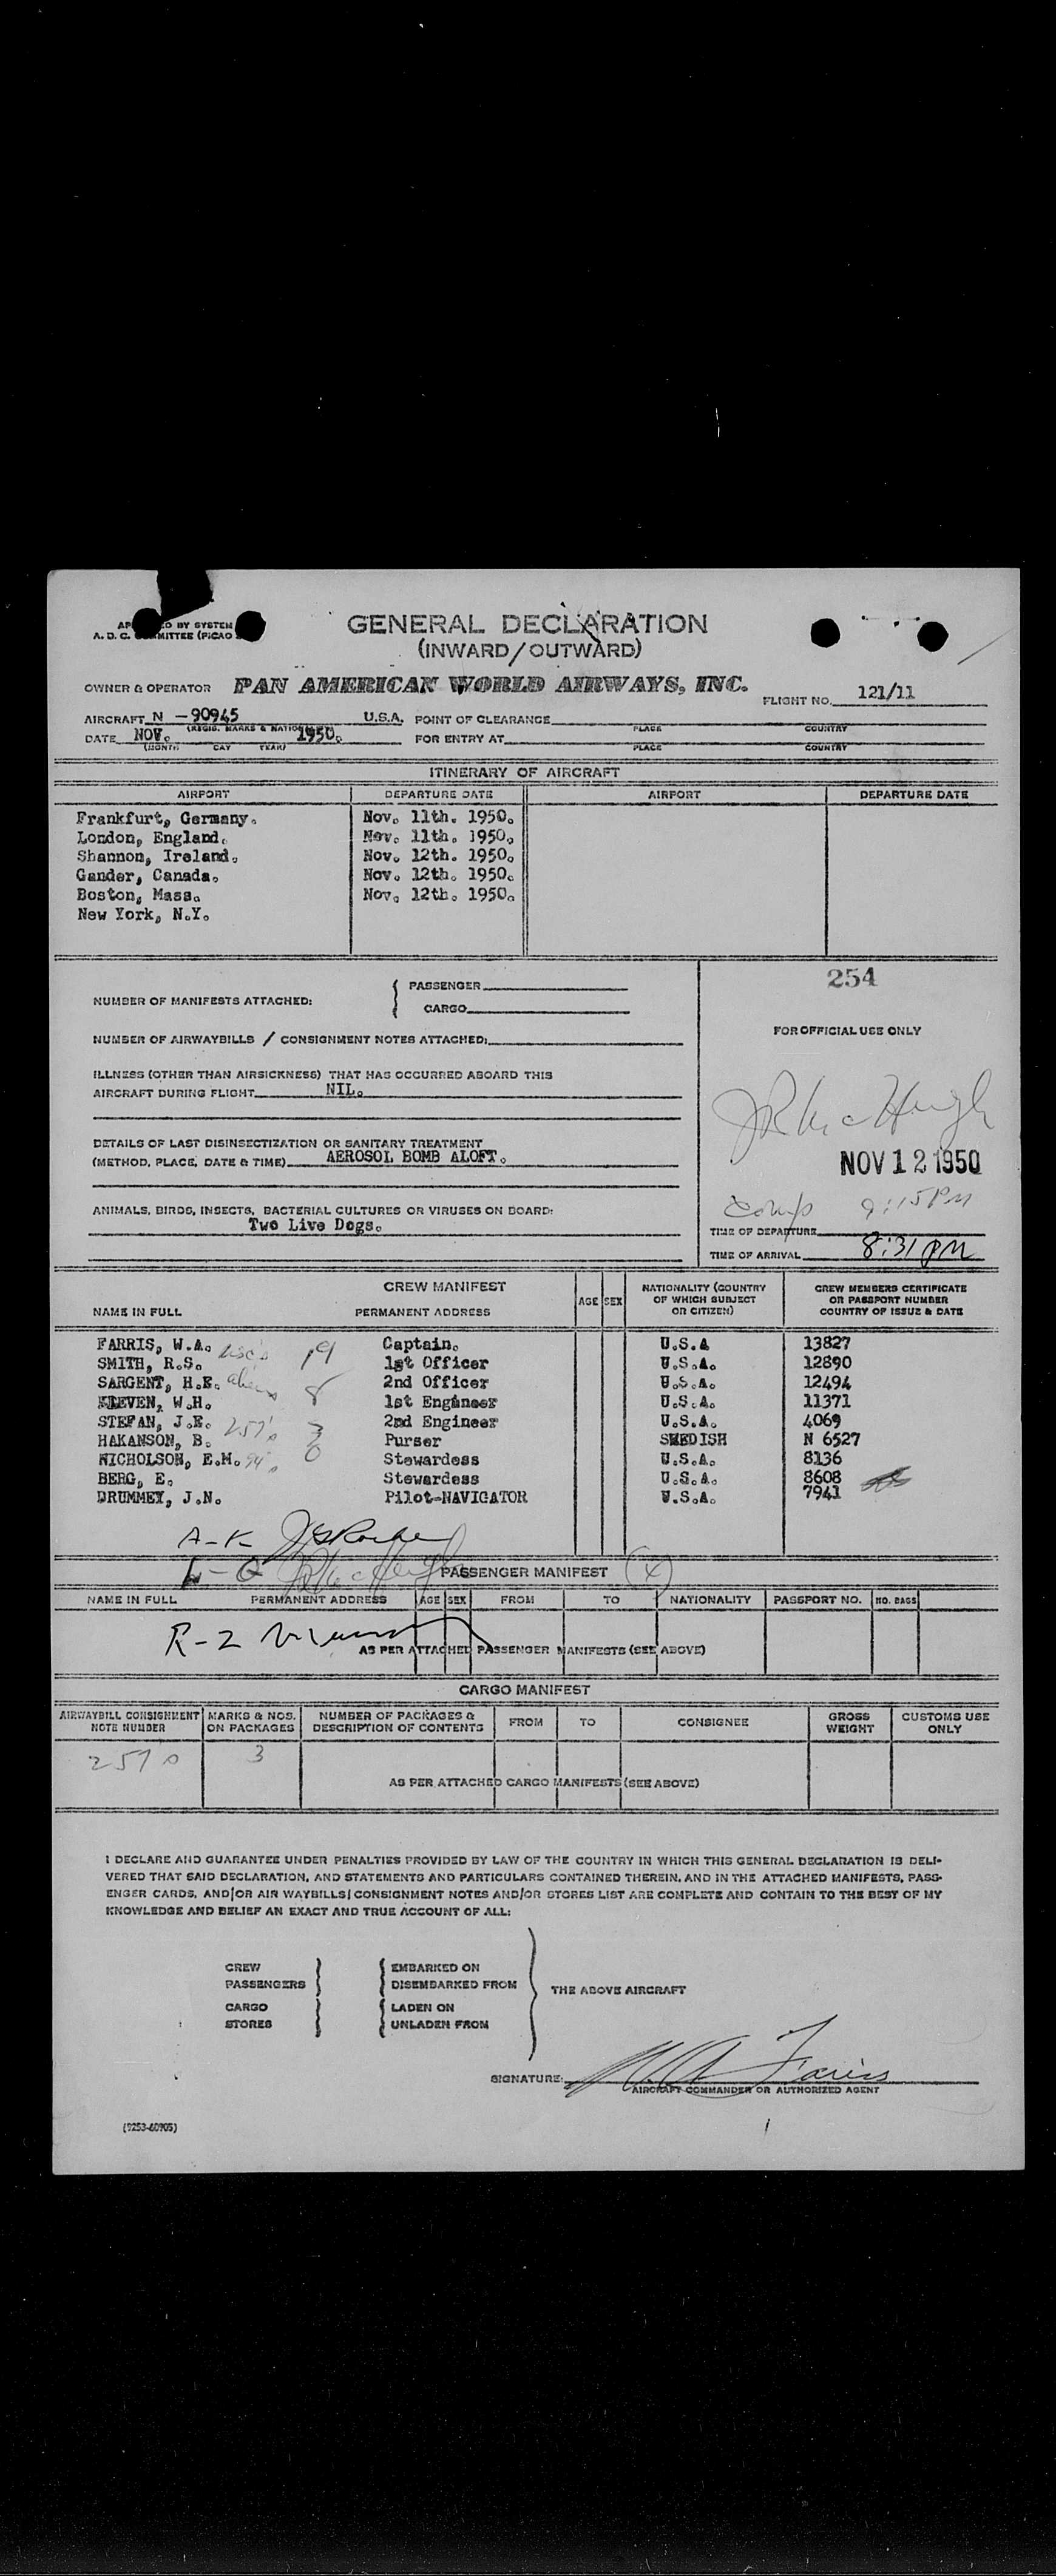 GENERAL DECLARATION
(INWARD/OUTWARD)
OWNER & OPERATOR PAN AMERICAN WORLD AIRWAYS, INC. FLIGHT NO. 121/11
AIRCRAFT N - 90945 U.S.A. POINT OF CLEARANCE
PLACE COUNTRY
DATE NOV. 1950. FOR ENTRY AT
(MONTH DAY YEAR) PLACE COUNTRY
ITINERARY OF AIRCRAFT
AIRPORT DEPARTURE DATE AIRPORT DEPARTURE DATE
Frankfurt, Germany. Nov. 11th. 1950.
London, England. Nov. 11th. 1950.
Shannon, Ireland. Nov. 12th. 1950.
Gander, Canada. Nov. 12th. 1950.
Boston, Mass. Nov. 12th. 1950.
New York, N.Y.
254
NUMBER OF MANIFESTS ATTACHED: PASSENGER
CARGO
FOR OFFICIAL USE ONLY
NUMBER OF AIRWAYBILLS / CONSIGNMENT NOTES ATTACHED:
ILLNESS (OTHER THAN AIRSICKNESS) THAT HAS OCCURRED ABOARD THIS
AIRCRAFT DURING FLIGHT NIL.
DETAILS OF LAST DISINSECTIZATION OR SANITARY TREATMENT
(METHOD, PLACE, DATE & TIME) AEROSOL BOMB ALOFT.
NOV 12 1950
Comp 9:15 PM
ANIMALS, BIRDS, INSECTS, BACTERIAL CULTURES OR VIRUSES ON BOARD:
Two Live Dogs.
TIME OF DEPARTURE
TIME OF ARRIVAL 8:31 PM
CREW MANIFEST
NAME IN FULL PERMANENT ADDRESS AGE SEX NATIONALITY (COUNTRY OF WHICH SUBJECT OR CITIZEN) CREW MEMBERS CERTIFICATE OR PASSPORT NUMBER COUNTRY OF ISSUE & DATE
FARRIS, W.A. Captain. U.S.A 13827
usc's 19
SMITH, R.S. 1st Officer U.S.A. 12890
SARGENT, H.E. aliens 8 2nd Officer U.S.A. 12494
KLEVEN, W.H. 1st Engineer U.S.A. 11371
STEFAN, J.E. 257's 3 2nd Engineer U.S.A. 4069
HAKANSON, B. Purser SWEDISH N 6527
NICHOLSON, E.M. 0 Stewardess U.S.A. 8136
BERG, E. Stewardess U.S.A. 8608
DRUMMEY, J.N. Pilot-NAVIGATOR U.S.A. 7941
A-K
L-Q
PASSENGER MANIFEST (4)
NAME IN FULL PERMANENT ADDRESS AGE SEX FROM TO NATIONALITY PASSPORT NO. NO. BAGS
R-Z
AS PER ATTACHED PASSENGER MANIFESTS (SEE ABOVE)
CARGO MANIFEST
AIRWAYBILL CONSIGNMENT NOTE NUMBER MARKS & NOS. ON PACKAGES NUMBER OF PACKAGES & DESCRIPTION OF CONTENTS FROM TO CONSIGNEE GROSS WEIGHT CUSTOMS USE ONLY
257's 3
AS PER ATTACHED CARGO MANIFESTS (SEE ABOVE)
I DECLARE AND GUARANTEE UNDER PENALTIES PROVIDED BY LAW OF THE COUNTRY IN WHICH THIS GENERAL DECLARATION IS DELI-
VERED THAT SAID DECLARATION, AND STATEMENTS AND PARTICULARS CONTAINED THEREIN, AND IN THE ATTACHED MANIFESTS, PASS-
ENGER CARDS, AND/OR AIR WAYBILLS/CONSIGNMENT NOTES AND/OR STORES LIST ARE COMPLETE AND CONTAIN TO THE BEST OF MY
KNOWLEDGE AND BELIEF AN EXACT AND TRUE ACCOUNT OF ALL:
CREW EMBARKED ON
PASSENGERS DISEMBARKED FROM
THE ABOVE AIRCRAFT
CARGO LADEN ON
STORES UNLADEN FROM
SIGNATURE: W.A. Farris
AIRCRAFT COMMANDER OR AUTHORIZED AGENT
(9253-60905)